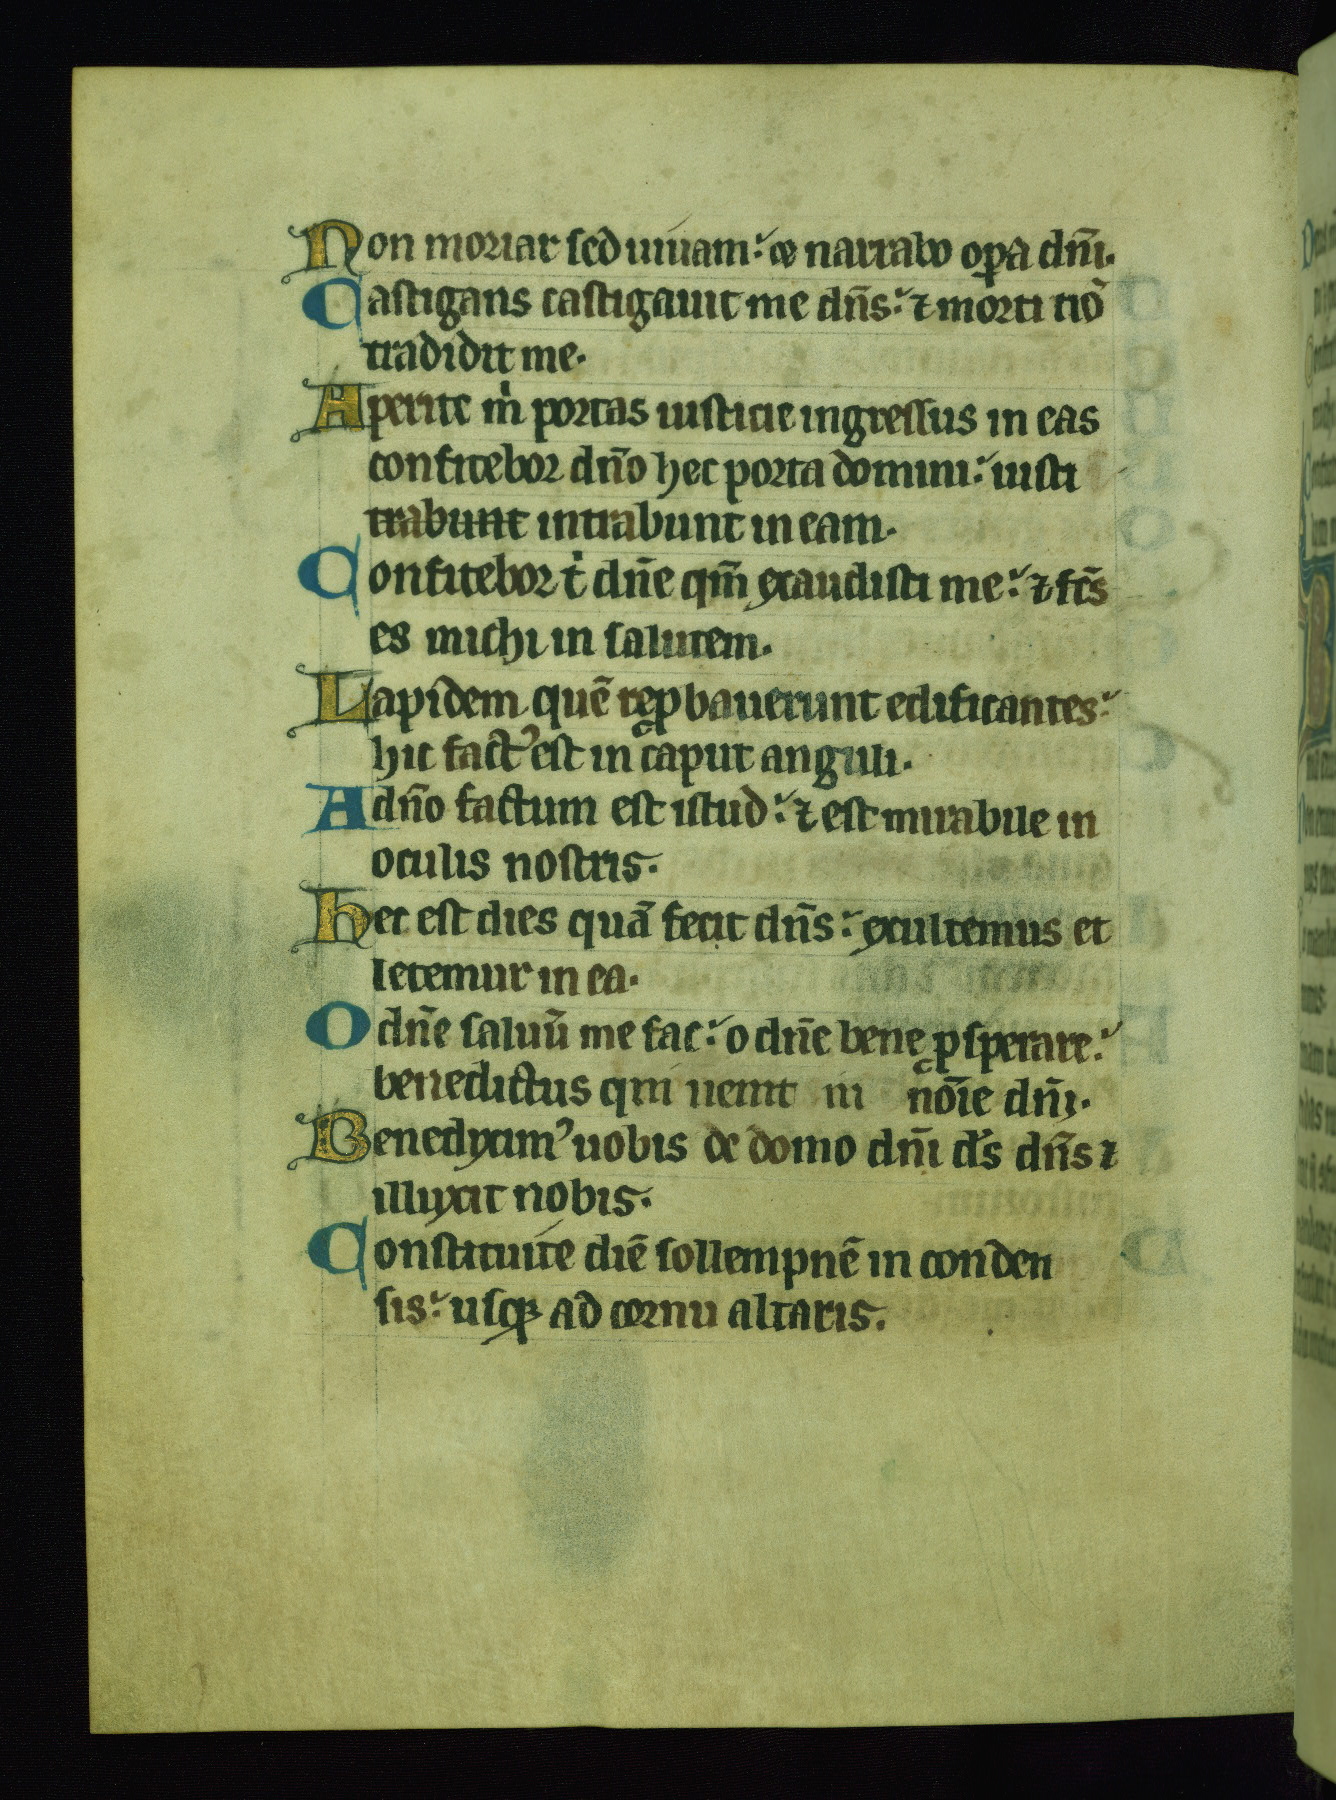 Non moriar sed uiuam: et narrabo opa dñi.
Castigans castigauit me dñs: ⁊ morti nõ
tradidit me.
Aperite m̍ portas iusticie ingressus in eas
confitebor dño hec porta domini: iusti
trabunt intrabunt in eam.
Confitebor t̍ dñe qm̃ exaudisti me: ⁊ fc̃s
es michi in salutem.
Lapidem quẽ reꝓbauerunt edificantes:
hic factꝰ est in caput anguli.
A dño factum est istud: ⁊ est mirabile in
oculis nostris.
Hec est dies quã fecit dñs: exultemus et
letemur in ea.
O dñe saluũ me fac: o dñe bene ꝓsperare:
benedictus qui uenit in nõie dñi.
Benediximꝰ uobis de domo dñi ds̃ dñs ⁊
illuxit nobis.
Constituite diẽ sollempnẽ in conden
sis: usqꝫ ad cornu altaris.